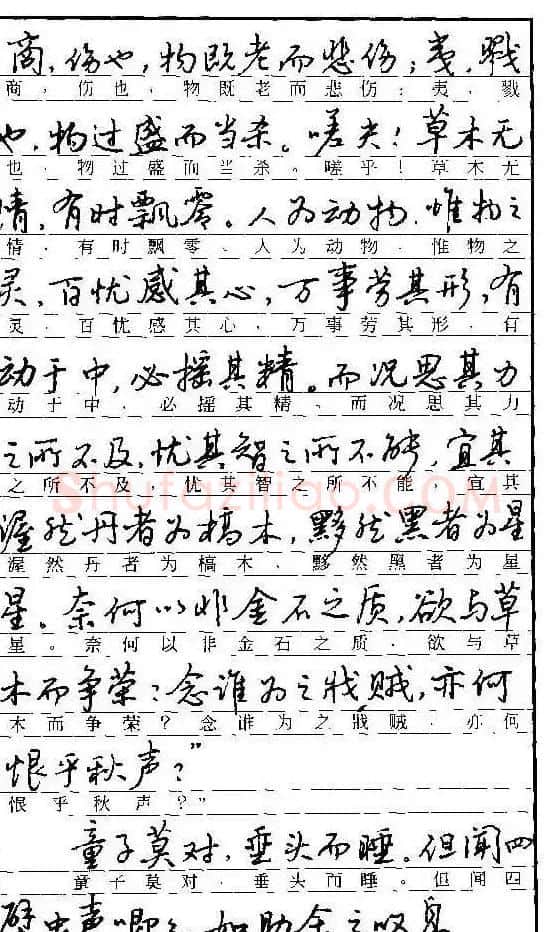 商，伤也，物既老而悲伤；夷，戮
商，伤也，物既老而悲伤；夷，戮
也，物过盛而当杀。嗟夫！草木无
也，物过盛而当杀。嗟乎！草木无
情，有时飘零。人为动物，惟物之
情，有时飘零、人为动物，惟物之
灵，百忧感其心，万事劳其形，有
灵，百忧感其心，万事劳其形，有
动于中，必摇其精。而况思其力
动于中，必摇其精、而况思其力
之所不及，忧其智之所不能，宜其
之所不及，忧其智之所不能，宜其
Shufaziliao.COM
渥然丹者为槁木，黟然黑者为星
渥然丹者为槁木，黟然黑者为星
星。奈何以非金石之质，欲与草
星。奈何以非金石之质，欲与草
木而争荣？念谁为之戕贼，亦何
木而争荣？念谁为之戕贼，亦何
恨乎秋声？”
恨乎秋声？”
童子莫对，垂头而睡。但闻四
童子莫对，垂头而睡。但闻四
壁虫声唧唧，如助余之叹息